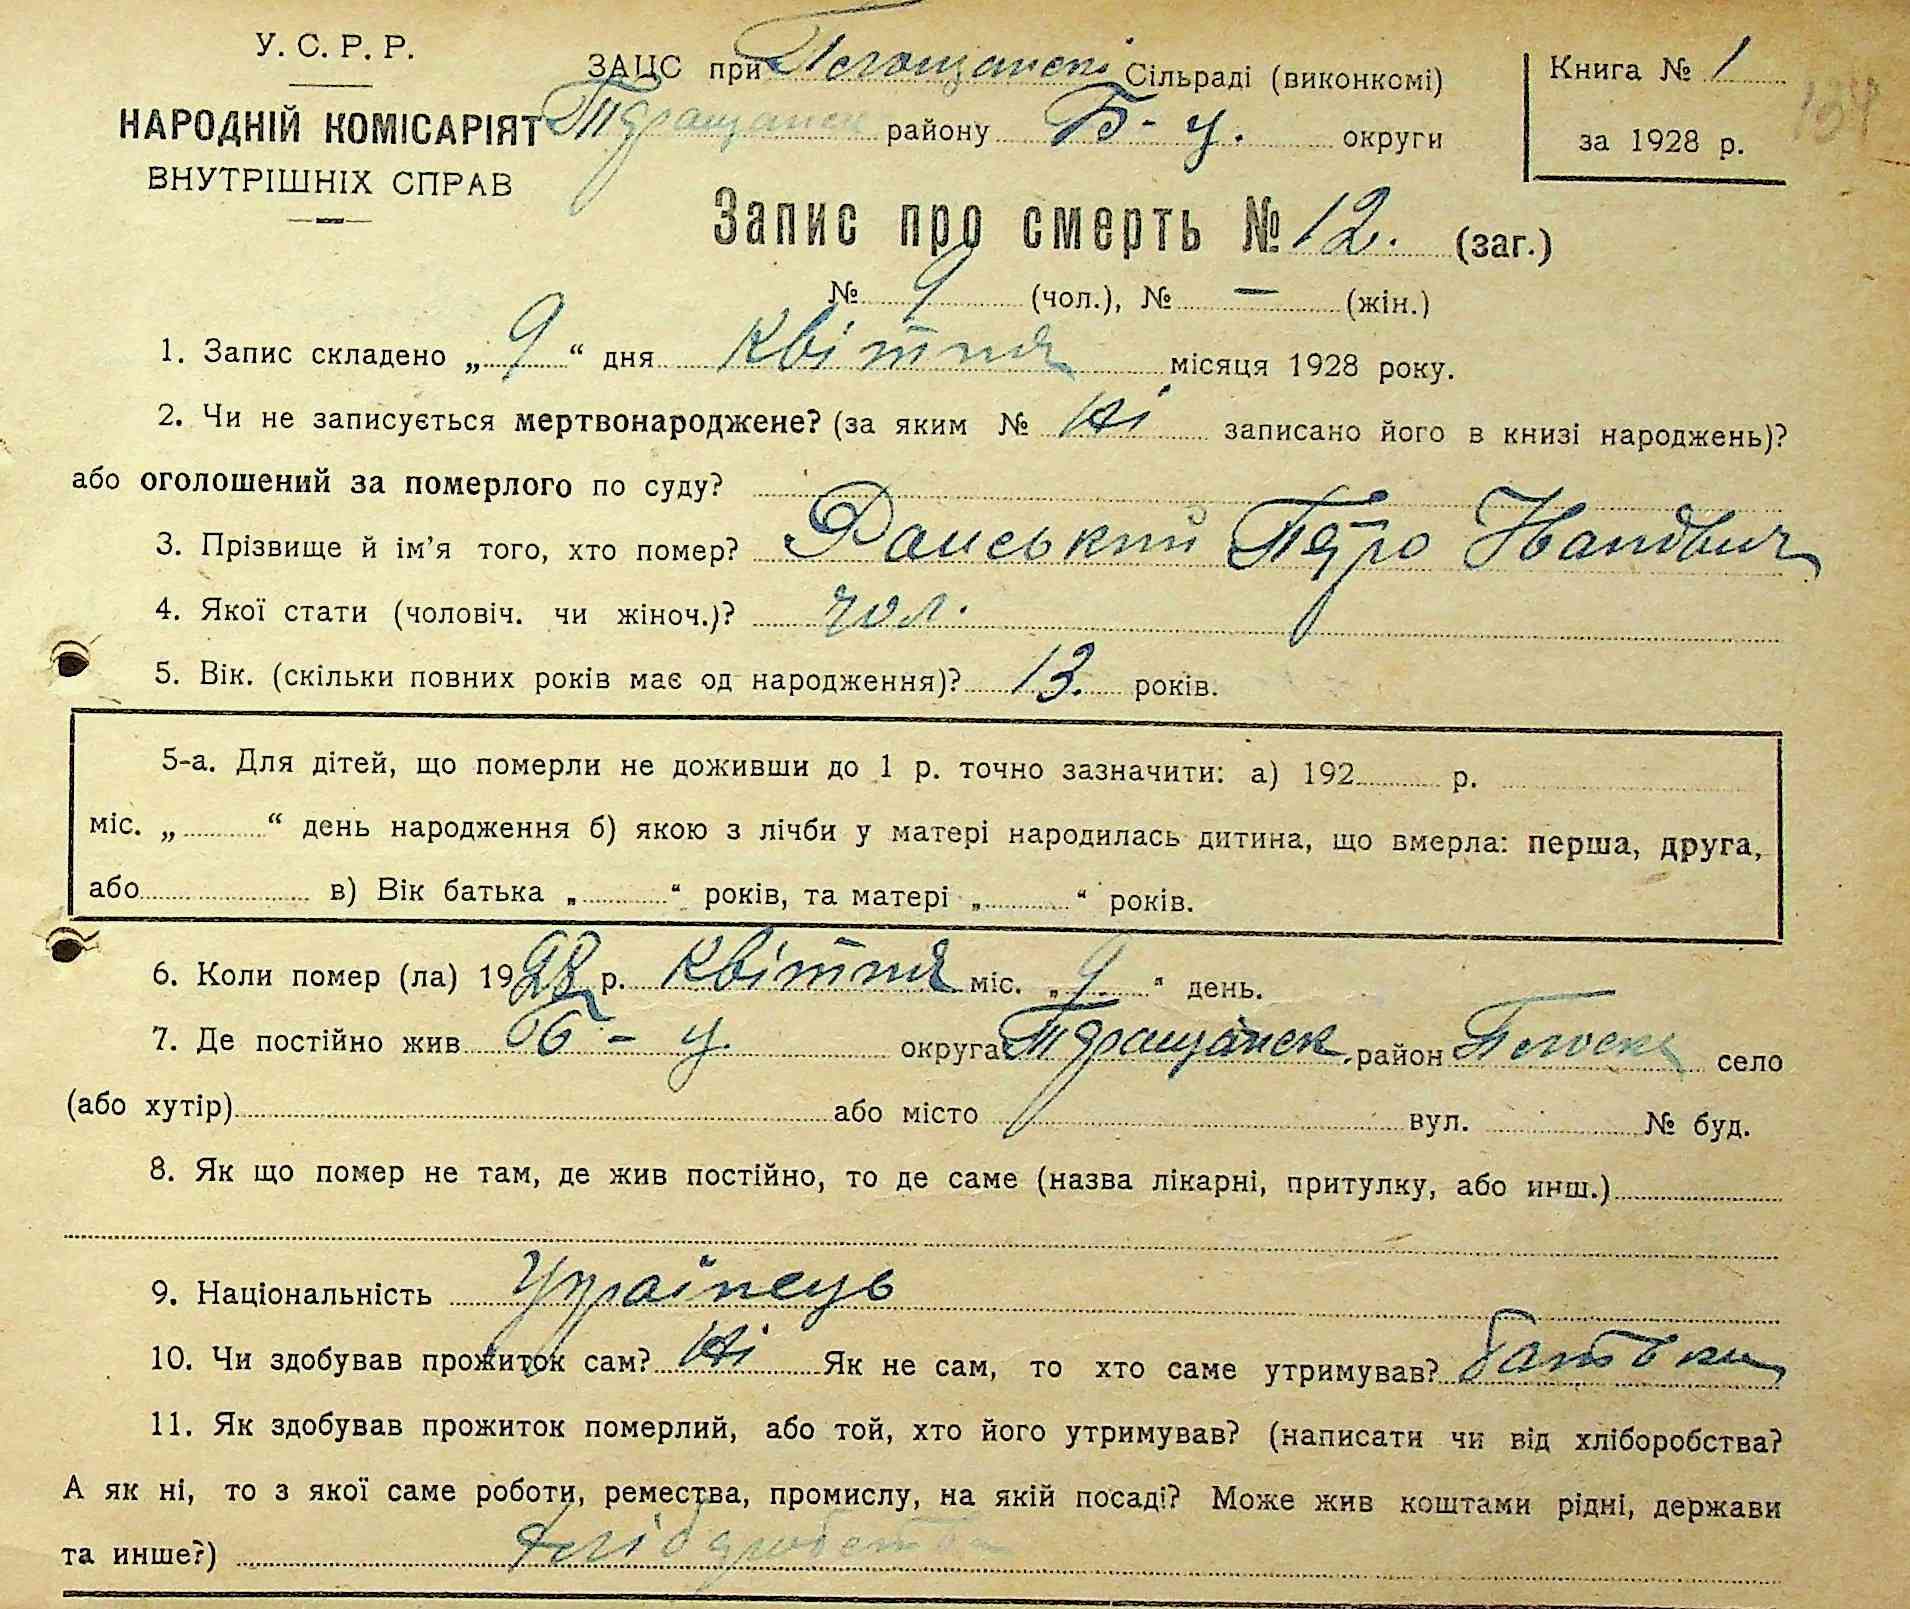 У. С. Р. Р.
НАРОДНІЙ КОМІСАРІЯТ
ВНУТРІШНІХ СПРАВ
ЗАЦС при Сільраді (виконкомі)
району Б-ц. округи
Книга № 1
за 1928 р.
134
Запис про смерть № 12. (заг.)
№ 9 (чол.), № — (жін.)
1. Запис складено „ 9 “ дня Квітня місяця 1928 року.
2. Чи не записується мертвонароджене? (за яким № Ні записано його в книзі народжень)?
або оголошений за померлого по суду?
3. Прізвище й ім'я того, хто помер? Петро Иванович
4. Якої стати (чоловіч. чи жіноч.)? чол.
5. Вік. (скільки повних років має од народження)? 13. років.
5-а. Для дітей, що померли не доживши до 1 р. точно зазначити: а) 192 р.
міс. „ “ день народження б) якою з лічби у матері народилась дитина, що вмерла: перша, друга,
або в) Вік батька „ “ років, та матері „ “ років.
6. Коли помер (ла) 1928 р. Квітня міс. „ 9 “ день.
7. Де постійно жив Б-ц. округа район село
(або хутір) або місто вул. № буд.
8. Як що помер не там, де жив постійно, то де саме (назва лікарні, притулку, або инш.)
9. Національність Українець
10. Чи здобував прожиток сам? Ні Як не сам, то хто саме утримував? батьки
11. Як здобував прожиток померлий, або той, хто його утримував? (написати чи від хліборобства?
А як ні, то з якої саме роботи, ремества, промислу, на якій посаді? Може жив коштами рідні, держави
та инше?) хліборобство